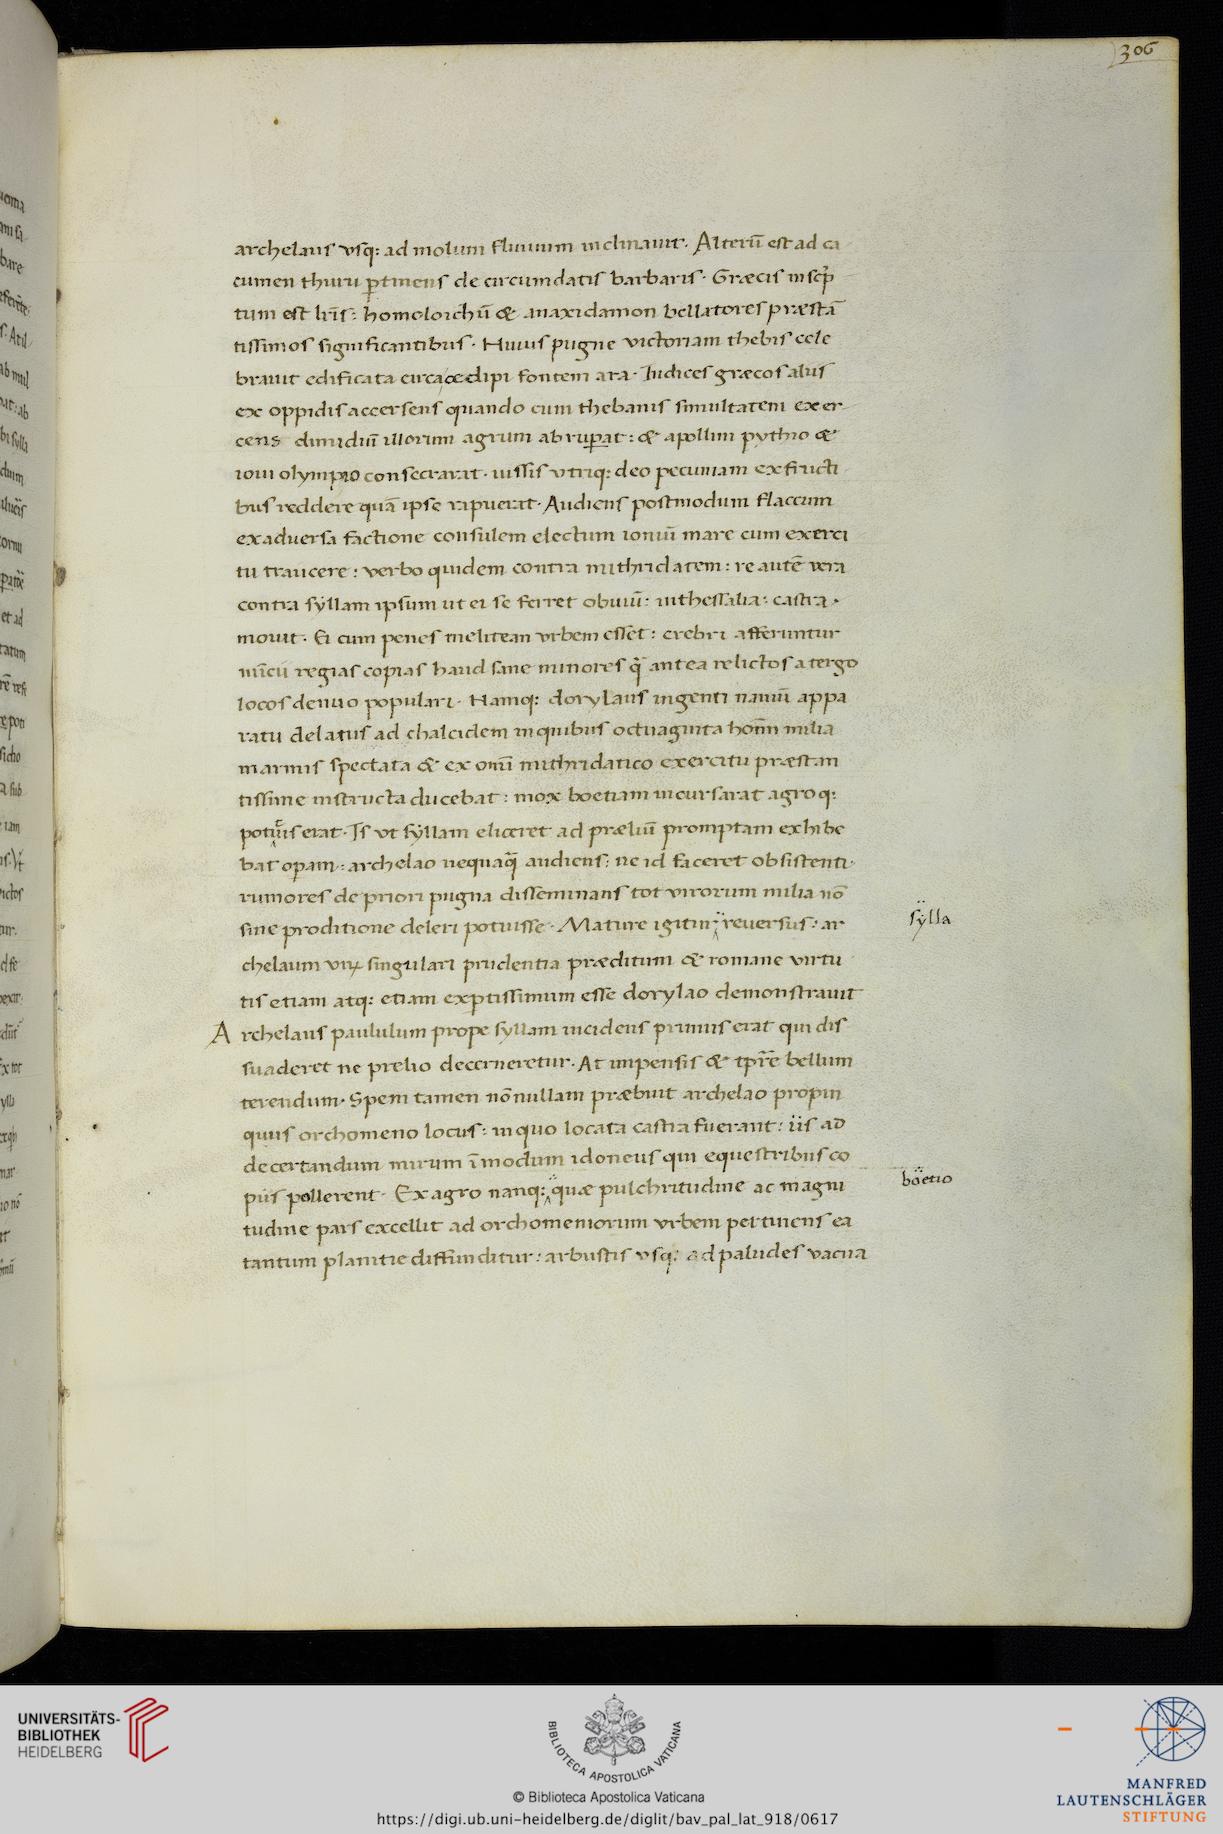 306
archelaus vsq: ad molum fluuium inclinauit. Alterū est ad ca
cumen thurii ꝑtinens de circumdatis barbaris. Græcis inscrip̄
tum est lr̄is: homoloichū & anaxidamon bellatores præstā
tissimos significantibus. Huius pugne victoriam thebis cele
brauit edificata circa oedipi fontem ara. Iudices græcos alius
ex oppidis accersens quando cum thebanis simultatem exer-
cens dimidiū illorum agrum abrupat: & apollini pythio &
ioui olympio consecrarat. iussis vtriq: deo pecuniam ex fructi
bus reddere quā ipse rapuerat. Audiens postmodum flaccum
ex aduersa factione consulem electum ioniū mare cum exerci
tu traiicere: verbo quidem contra mithridatem: re autē vera
contra syllam ipsum ut ei se ferret obuiū: in thessalia: castra.
mouit. Ei cum penes melitean vrbem esset: crebri afferuntur
nūcii regias copias haud sane minores q̄ antea relictos a tergo
locos denuo populari. Namq: dorylaus ingenti nauiū appa
ratu delatus ad chalcidem in quibus octuaginta hoīm milia
in armis spectata & ex omī mithridatico exercitu præstan
tissime instructa ducebat: mox boetiam incursarat agroq:
potitus erat. Is vt syllam eliceret ad præliū promptam exhibe
bat operam: archelao nequaq̄ audiens: ne id faceret obsistenti.
rumores de priori pugna disseminans tot virorum milia nō
sine proditione deleri potuisse. Mature igitur reuersus: ar
sylla
chelaum virū singulari prudentia præditum & romane virtu
tis etiam atq: etiam exꝑtissimum esse dorylao demonstrauit
Archelaus paululum prope syllam incidens primus erat qui dis
suaderet ne prelio decerneretur. At impensis & tp̄re bellum
terendum. Spem tamen nō nullam præbuit archelao propin
quus orchomeno locus: in quo locata castra fuerant: iis ad
decertandum mirum ī modum idoneus qui equestribus co
piis pollerent. Ex agro nanq: quæ pulchritudine ac magni
boetio
tudine pars excellit ad orchomeniorum vrbem pertinens ea
tantum planitie diffunditur: arbustis vsq: ad paludes vacua
UNIVERSITÄTS-
BIBLIOTHEK
HEIDELBERG
BIBLIOTECA APOSTOLICA VATICANA
© Biblioteca Apostolica Vaticana
https://digi.ub.uni-heidelberg.de/diglit/bav_pal_lat_918/0617
MANFRED
LAUTENSCHLÄGER
STIFTUNG